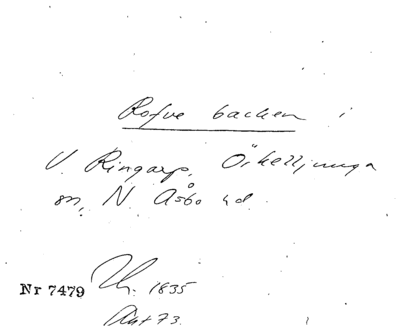 Rofve backen i
V. Ringarp, Örkelljunga
sn, N Åsbo hd.
Nr 7479
1835
Akt 73.